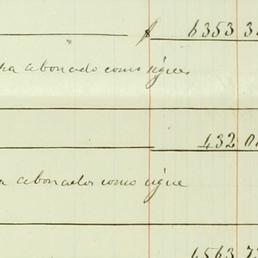 $ 6353 3
ha abonado como sigue.
432 0
abonados como sigue
1563 7